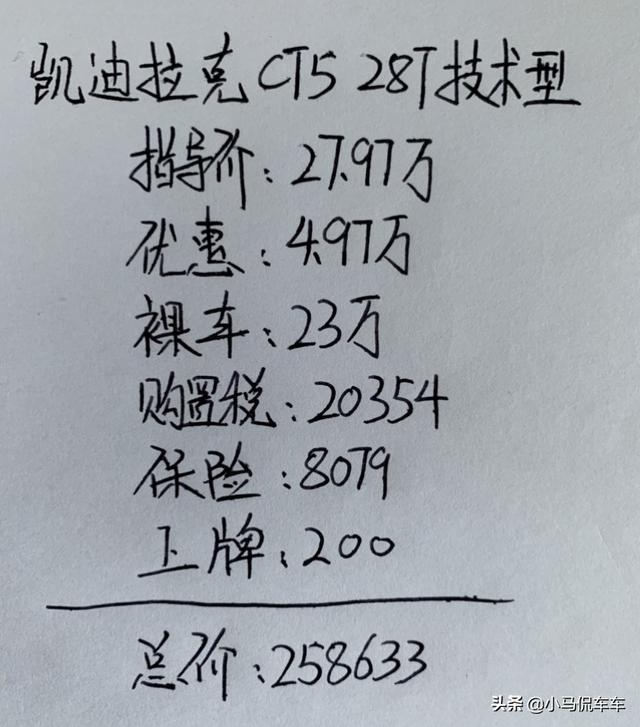 凯迪拉克CT5 28T技术型
指导价：27.97万
优惠：4.97万
裸车：23万
购置税：20354
保险：8079
上牌：200
总价：258633
头条 @小马侃车车